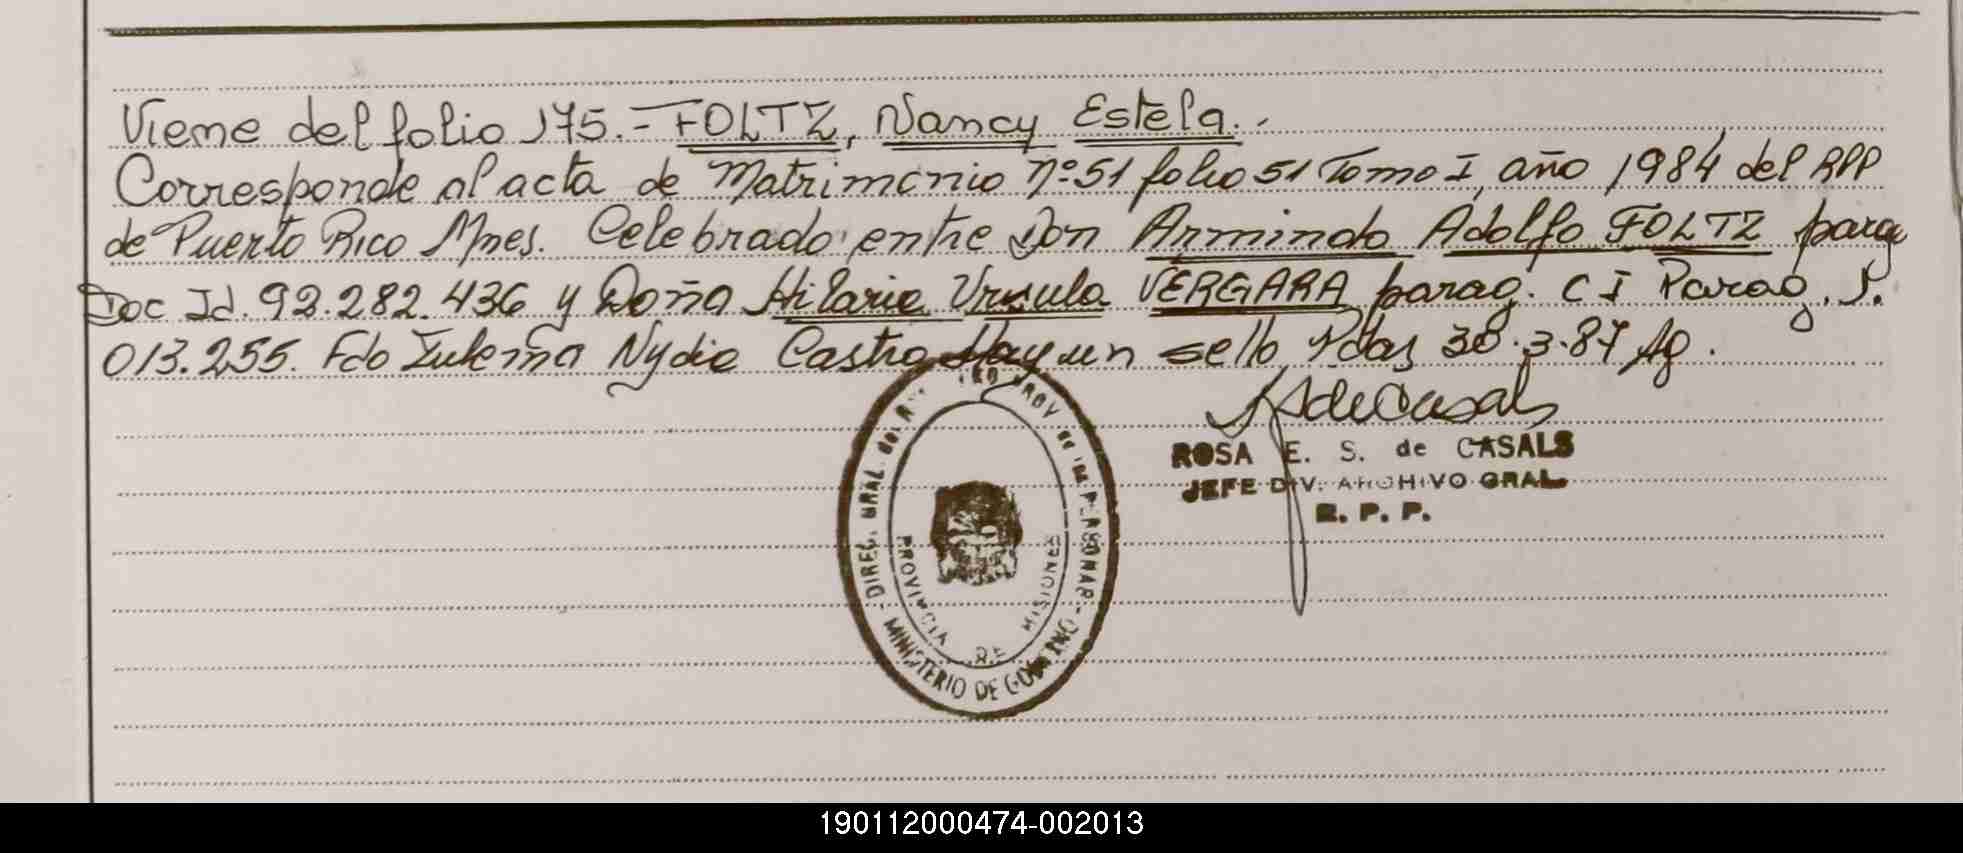 Viene del folio 175.- FOLTZ, Nancy Estela.-
Corresponde al acta de Matrimonio Nº 51 folio 51 Tomo I, año 1984 del RPP
de Puerto Rico Mnes. Celebrado entre Don Armindo Adolfo FOLTZ parag
Doc Id. 92.282.436 y Doña Hilaria Ursula VERGARA parag. C I Parag.
013.255. Fdo Zulema Nydia Castro Hay un sello Pdas 30.3.87
ROSA E. S. de CASALS
JEFE DIV. ARCHIVO GRAL.
R. P. P.
DIREC. GRAL. DEL PROV. DE LAS PERSONAS
PROVINCIA DE MISIONES
MINISTERIO DE GOBIERNO
190112000474-002013